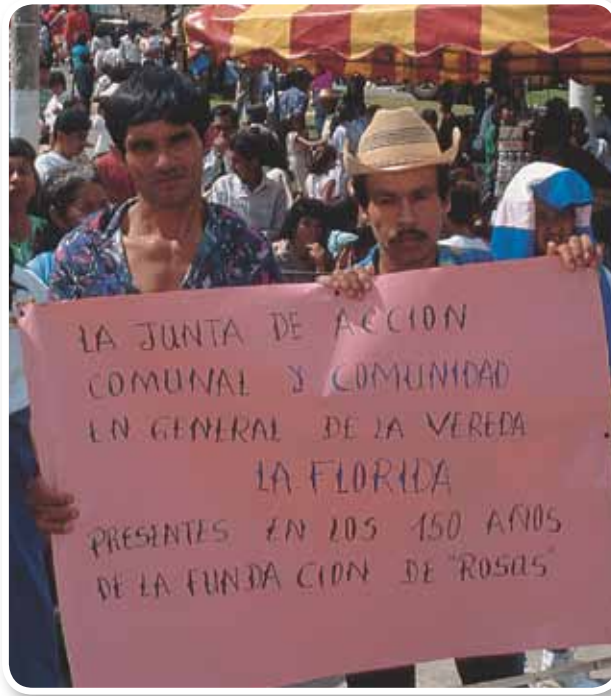 LA JUNTA DE ACCION
COMUNAL Y COMUNIDAD
EN GENERAL DE LA VEREDA
LA FLORIDA
PRESENTES EN LOS 150 AÑOS
DE LA FUNDACION DE "ROSAS"